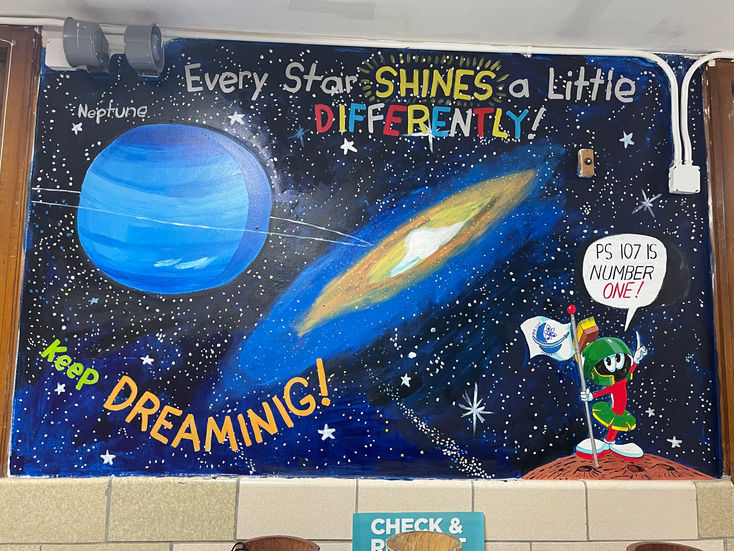 Every Star SHINES a Little
DIFFERENTLY!
Neptune
PS 107 IS
NUMBER
ONE!
Keep
DREAMINIG!
CHECK &